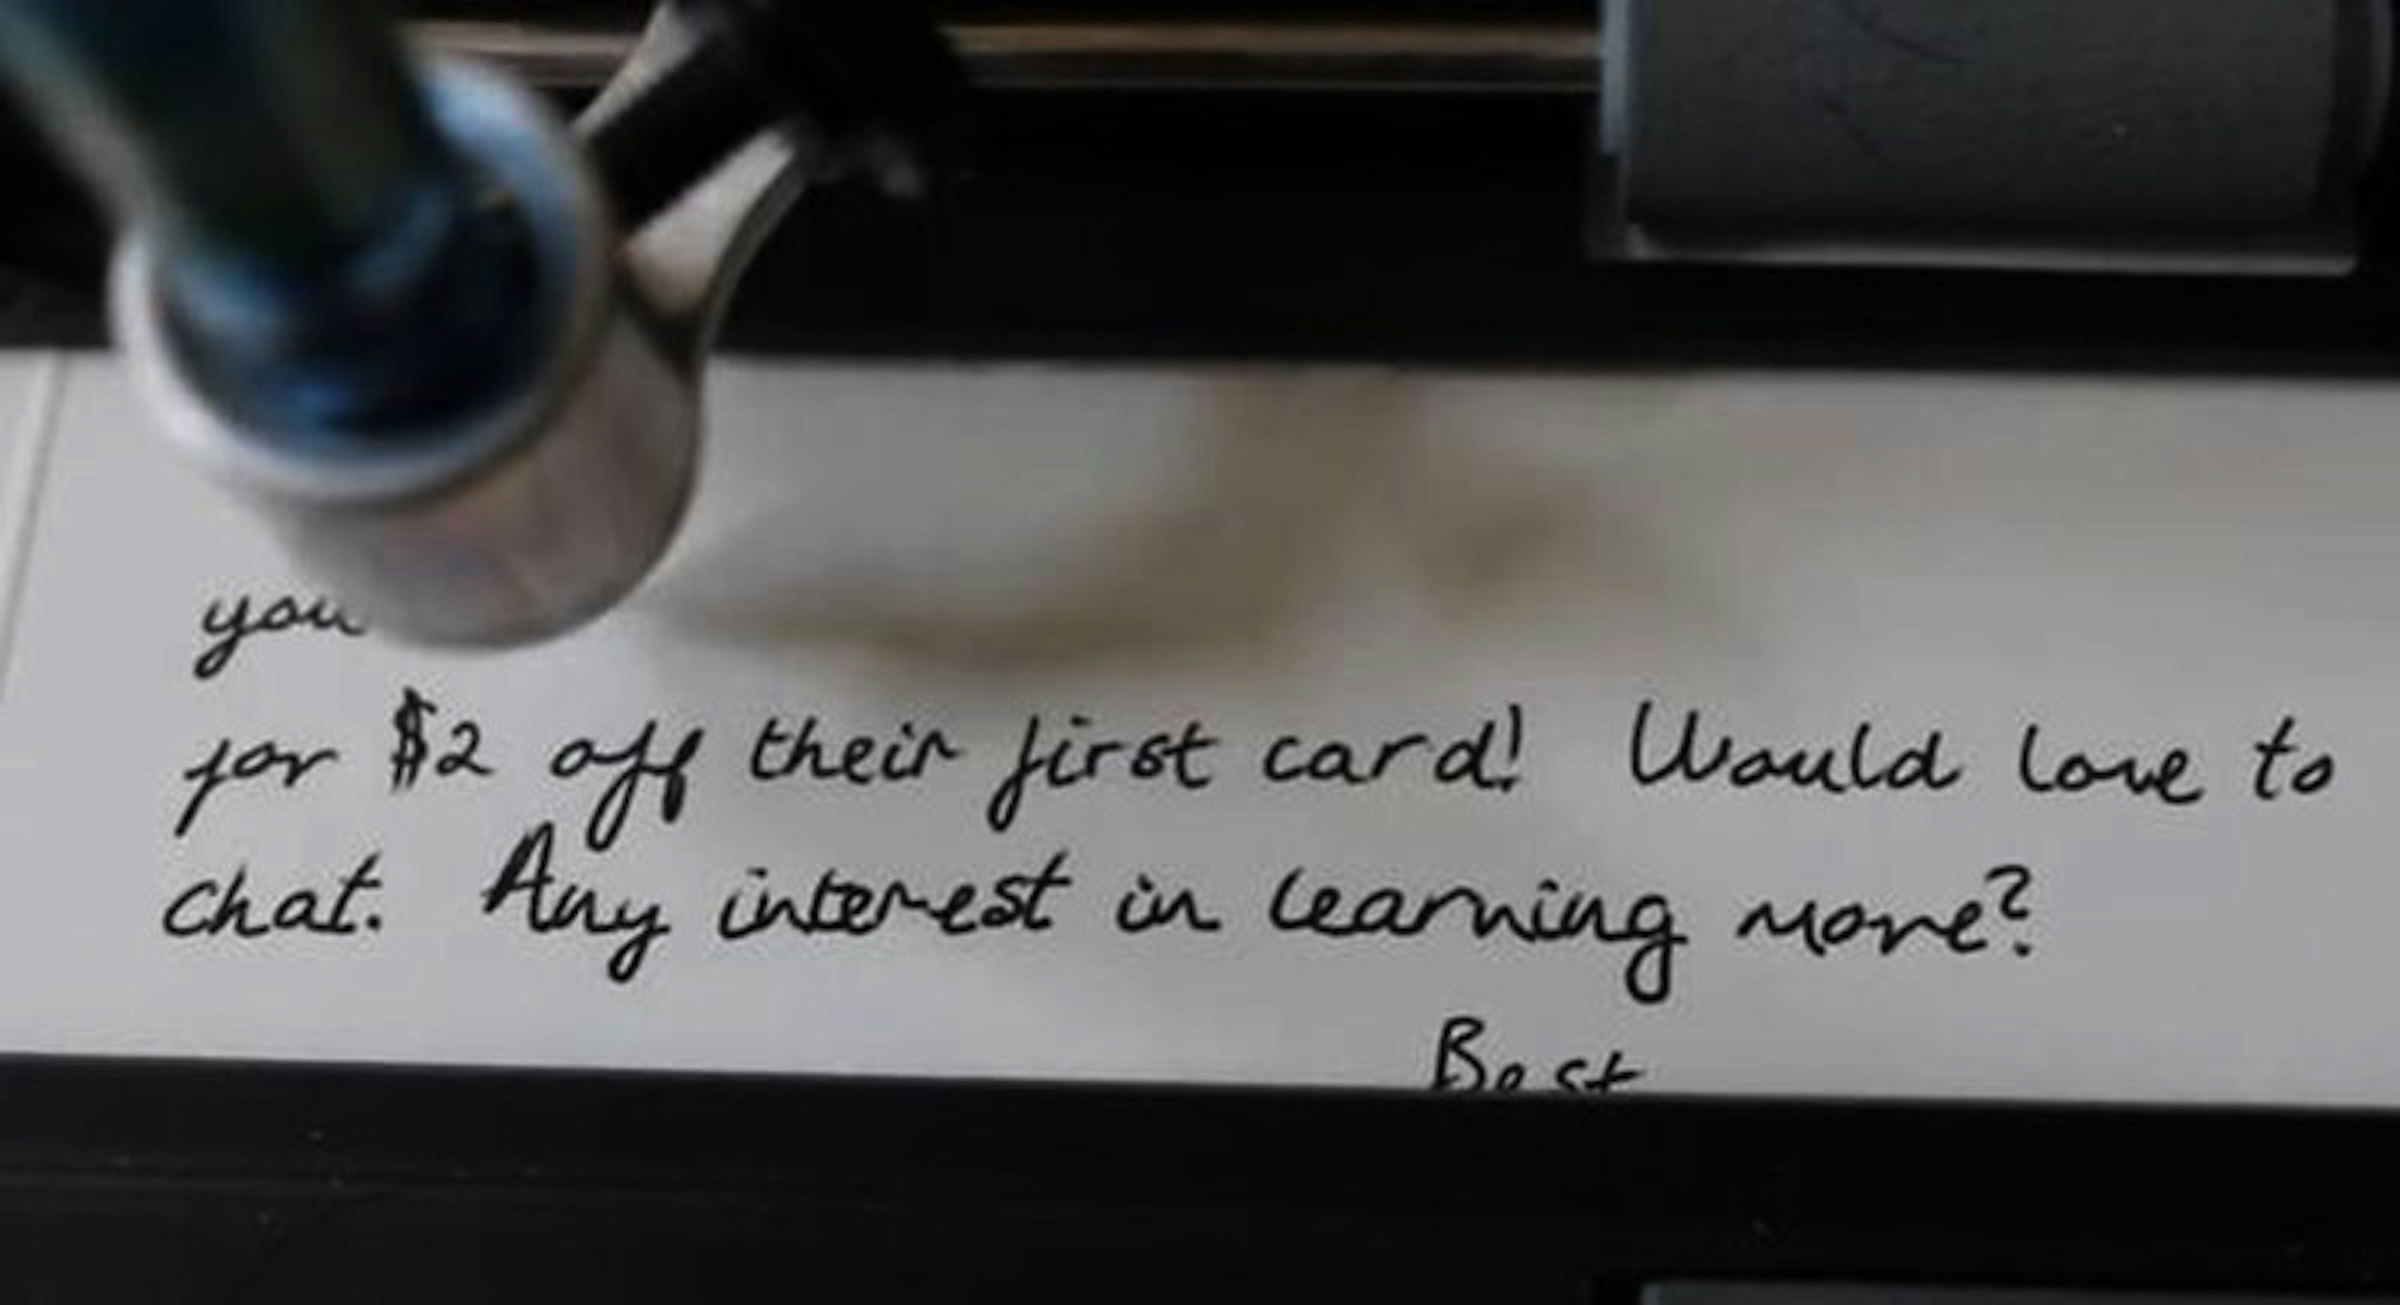 you
for $2 off their first card! Would love to
chat. Any interest in learning more?
Best